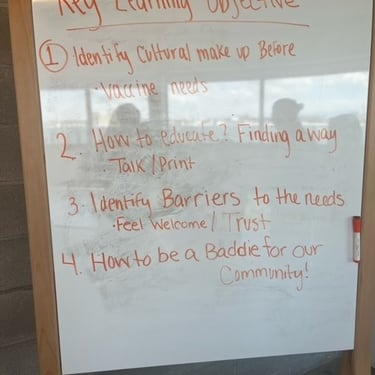 Key Learning Objective
① Identify Cultural make up Before
• Vaccine needs
2. How to educate? Finding a way
• Talk/Print
3. Identify Barriers to the needs
• Feel Welcome/Trust
4. How to be a Baddie for our
Community!